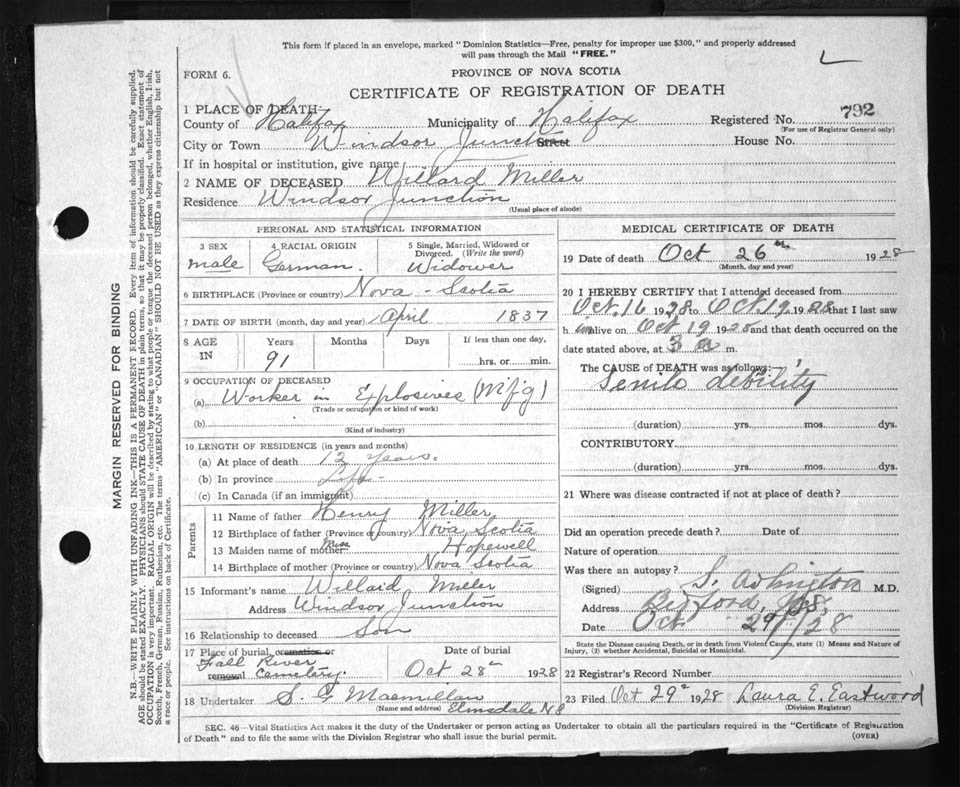 This form if placed in an envelope, marked "Dominion Statistics—Free, penalty for improper use $300," and properly addressed
will pass through the Mail "FREE."
L
FORM 6.
PROVINCE OF NOVA SCOTIA
CERTIFICATE OF REGISTRATION OF DEATH
1 PLACE OF DEATH—
County of Halifax Municipality of Halifax Registered No. 792
(For use of Registrar General only)
City or Town Windsor Junction Street House No.
If in hospital or institution, give name
2 NAME OF DECEASED Willard Miller
Residence Windsor Junction
(Usual place of abode)
PERSONAL AND STATISTICAL INFORMATION
3 SEX 4 RACIAL ORIGIN 5 Single, Married, Widowed or
Divorced. (Write the word)
male German. Widower
6 BIRTHPLACE (Province or country) Nova-Scotia
7 DATE OF BIRTH (month, day and year) April 1837
8 AGE IN Years Months Days If less than one day,
91 hrs. or min.
9 OCCUPATION OF DECEASED
(a) Worker in Explosives (Mfg)
(Trade or occupation or kind of work)
(b)
(Kind of industry)
10 LENGTH OF RESIDENCE (in years and months)
(a) At place of death 12 years.
(b) In province Life
(c) In Canada (if an immigrant)
Parents
11 Name of father Henry Miller
12 Birthplace of father (Province or country) Nova Scotia
13 Maiden name of mother Miss Hopewell
14 Birthplace of mother (Province or country) Nova Scotia
15 Informant's name Willard Miller
Address Windsor Junction
16 Relationship to deceased Son
17 Place of burial, cremation or removal Date of burial
Fall River
Cemetery Oct 28 1928
18 Undertaker S. G Macmillan
(Name and address) Elmsdale N S
MEDICAL CERTIFICATE OF DEATH
19 Date of death Oct 26th 1928
(Month, day and year)
20 I HEREBY CERTIFY that I attended deceased from
Oct. 16 1928 to Oct 19 1928 that I last saw
him alive on Oct 19 1928 and that death occurred on the
date stated above, at 3 a m.
The CAUSE of DEATH was as follows:
Senile debility
(duration) yrs. mos. dys.
CONTRIBUTORY
(duration) yrs. mos. dys.
21 Where was disease contracted if not at place of death?
Did an operation precede death? Date of
Nature of operation
Was there an autopsy?
(Signed) S. M.D.
Address Bedford, N.S.
Date Oct 29/28
State the Disease causing Death, or in death from Violent Causes, state (1) Means and Nature of
Injury, (2) whether Accidental, Suicidal or Homicidal.
22 Registrar's Record Number
23 Filed Oct 29 1928 Laura E. Eastwood
(Division Registrar)
SEC. 46—Vital Statistics Act makes it the duty of the Undertaker or person acting as Undertaker to obtain all the particulars required in the "Certificate of Registration
of Death" and to file the same with the Division Registrar who shall issue the burial permit.
(OVER)
MARGIN RESERVED FOR BINDING
N.B.—WRITE PLAINLY WITH UNFADING INK—THIS IS A PERMANENT RECORD. Every item of information should be carefully supplied.
AGE should be stated EXACTLY. PHYSICIANS should STATE CAUSE OF DEATH in plain terms, so that it may be properly classified. Exact statement of
OCCUPATION is very important. RACIAL ORIGIN will be described by stating to what people or tongue the deceased person belonged, whether English, Irish,
Scotch, French, German, Russian, Ruthenian, etc. The terms "AMERICAN" or "CANADIAN" SHOULD NOT BE USED as they express citizenship but not
a race or people. See instructions on back of Certificate.